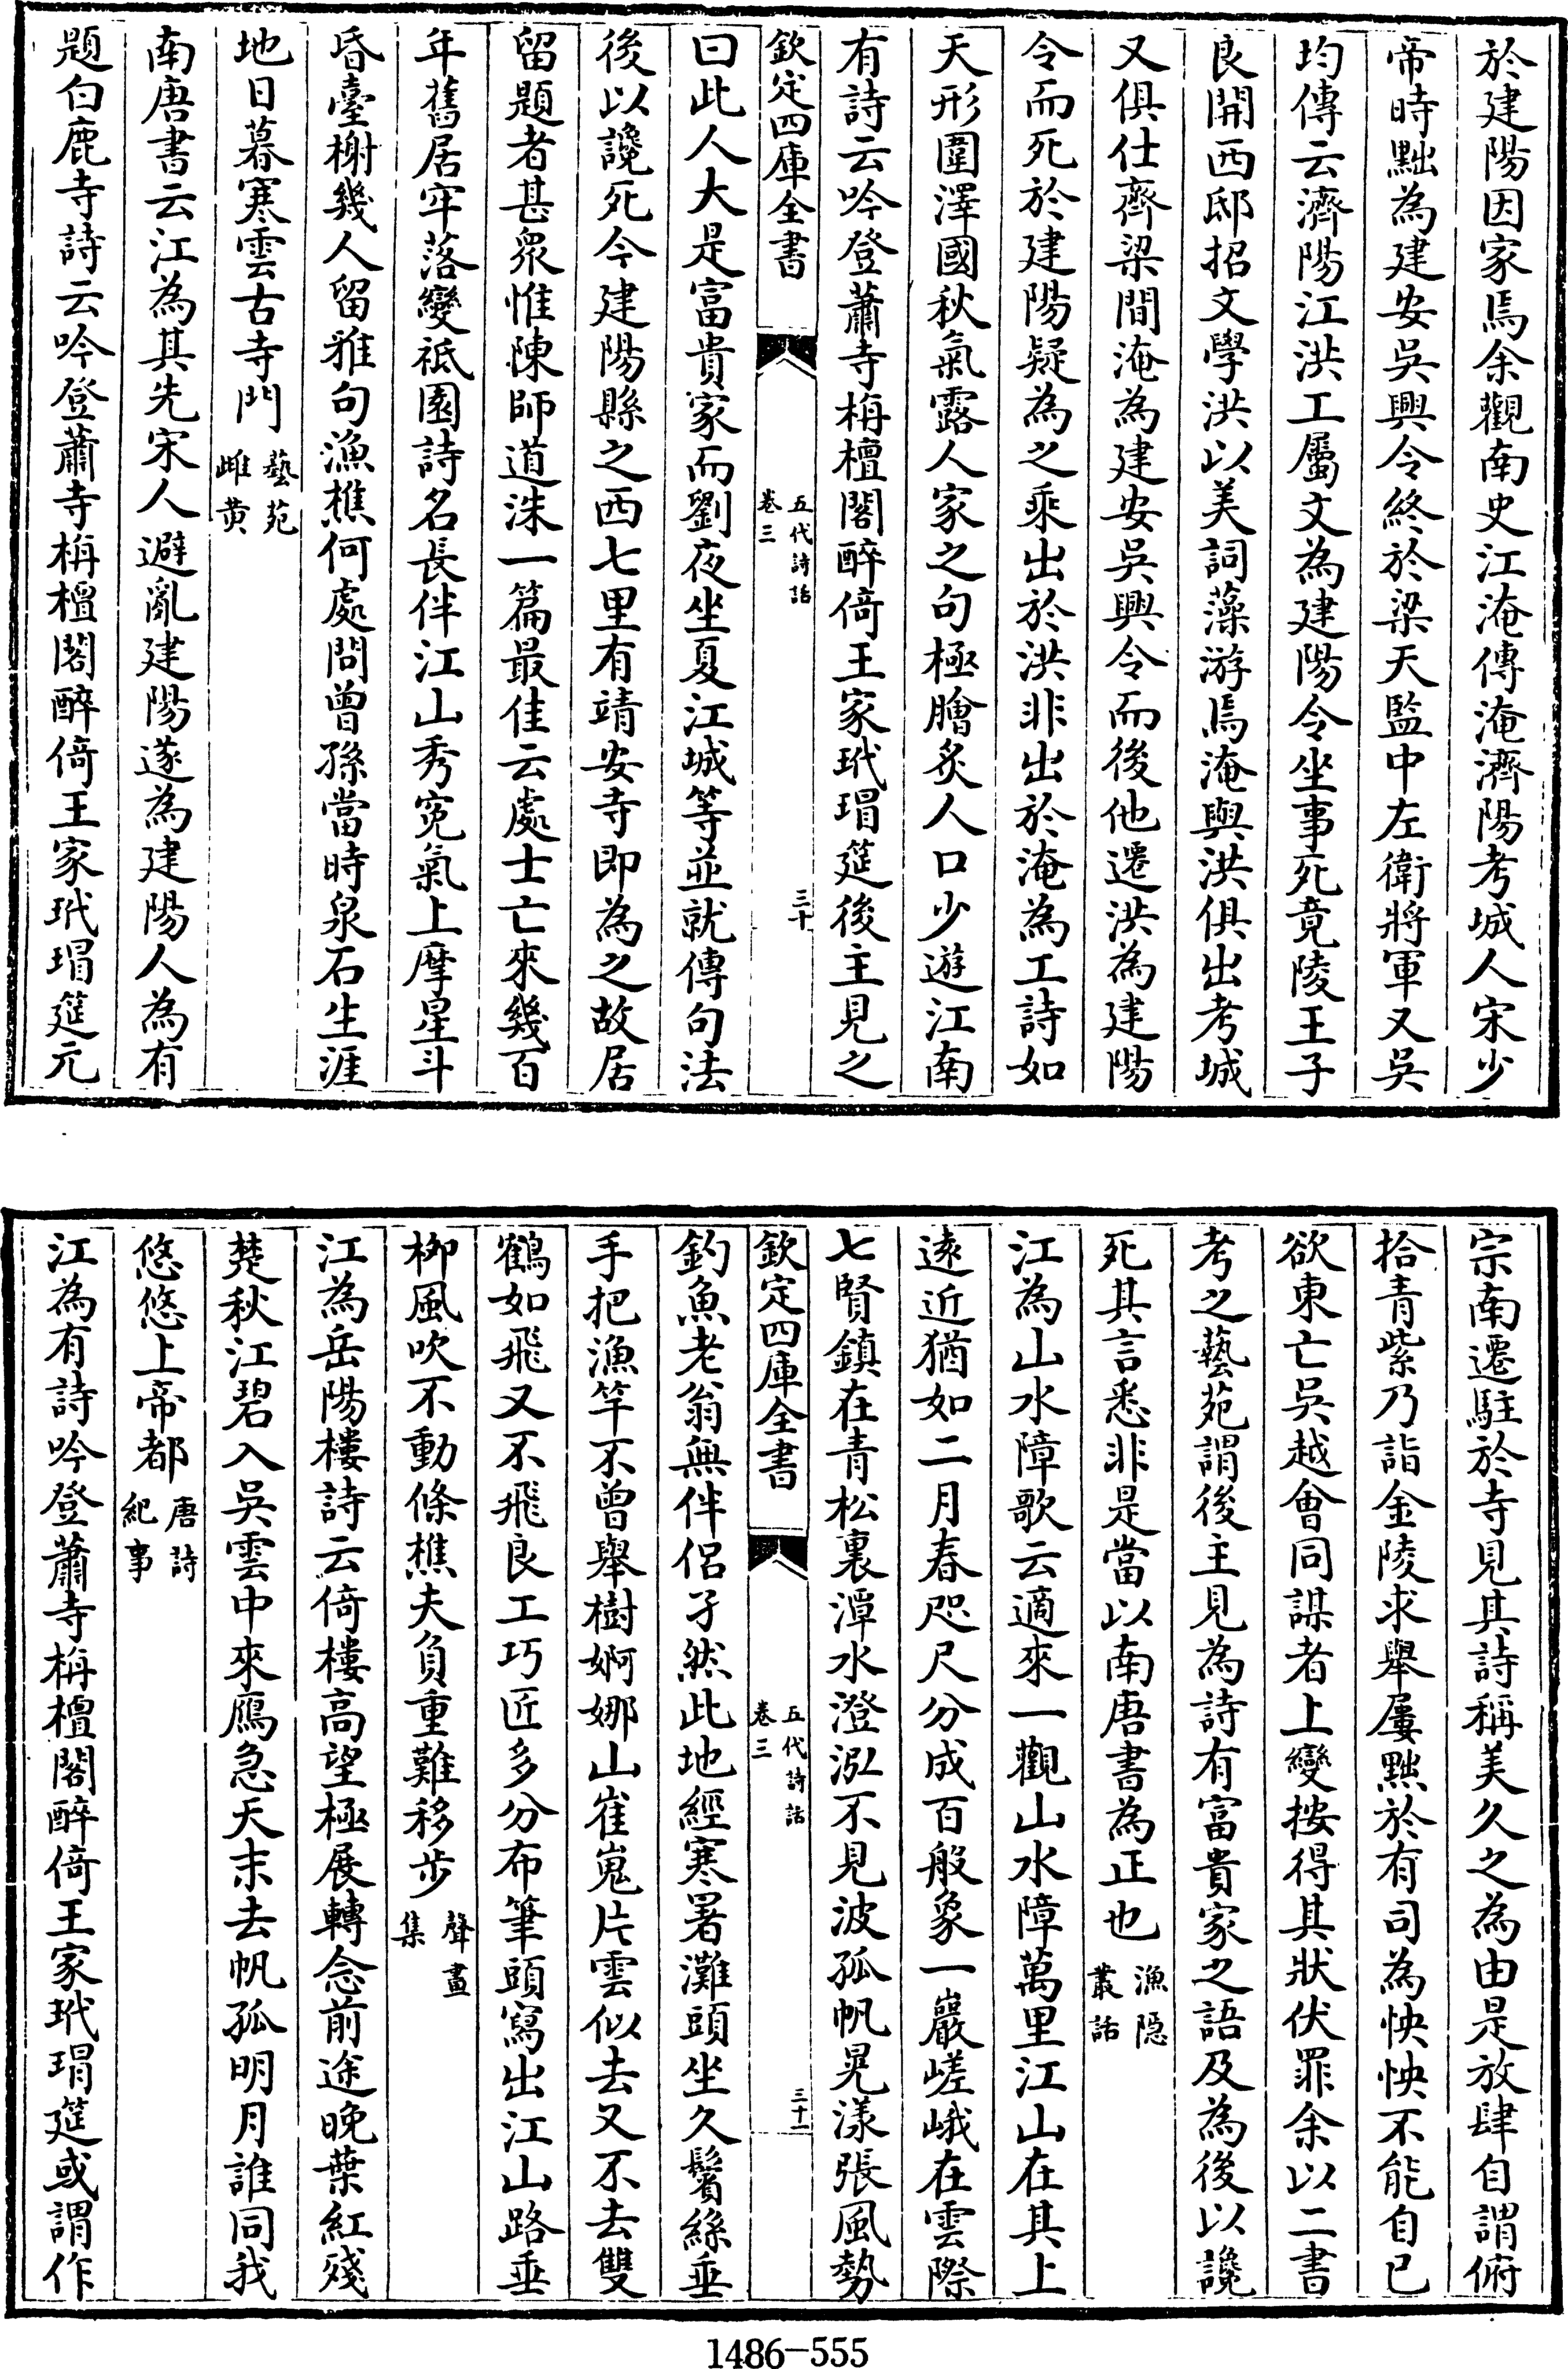 於建陽因家焉余觀南史江淹傳淹濟陽考城人宋少
帝時黜為建安吳興令終於梁天監中左衛將軍又吳
均傳云濟陽江洪工屬文為建陽令坐事死竟陵王子
良開西邸招文學洪以美詞藻游焉淹與洪俱出考城
又俱仕齊梁間淹為建安吳興令而後他遷洪為建陽
令而死於建陽疑為之乘出於洪非出於淹為工詩如
天形圍澤國秋氣露人家之句極膾炙人口少遊江南
有詩云吟登蕭寺栴檀閣醉倚王家玳瑁筵後主見之
欽定四庫全書
五代詩話
卷三
三十
曰此人大是富貴家而劉夜坐夏江城等並就傳句法
後以讒死今建陽縣之西七里有靖安寺即為之故居
留題者甚眾惟陳師道洙一篇最佳云處士亡來幾百
年舊居牢落變祗園詩名長伴江山秀寃氣上摩星斗
昏臺榭幾人留雅句漁樵何處問曾孫當時泉石生涯
地日暮寒雲古寺門
藝苑
雌黄
南唐書云江為其先宋人避亂建陽遂為建陽人為有
題白鹿寺詩云吟登蕭寺栴檀閣醉倚王家玳瑁筵元
宗南遷駐於寺見其詩稱美久之為由是放肆自謂俯
拾青紫乃詣金陵求舉屢黜於有司為怏怏不能自已
欲東亡吳越會同謀者上變按得其狀伏罪余以二書
考之藝苑謂後主見為詩有富貴家之語及為後以讒
死其言悉非是當以南唐書為正也
漁隱
叢話
江為山水障歌云適來一觀山水障萬里江山在其上
遠近猶如二月春咫尺分成百般象一巖嵯峨在雲際
七賢鎮在青松裏潭水澄泓不見波孤帆晃漾張風勢
欽定四庫全書
五代詩話
卷三
三十一
釣魚老翁無伴侶孑然此地經寒暑灘頭坐久鬢絲垂
手把漁竿不曾舉樹婀娜山崔嵬片雲似去又不去雙
鶴如飛又不飛良工巧匠多分布筆頭寫出江山路垂
柳風吹不動條樵夫負重難移步
聲畫
集
江為岳陽樓詩云倚樓高望極展轉念前途晚葉紅殘
楚秋江碧入吳雲中來鴈急天末去帆孤明月誰同我
悠悠上帝都
唐詩
紀事
江為有詩吟登蕭寺栴檀閣醉倚王家玳瑁筵或謂作
1486-555